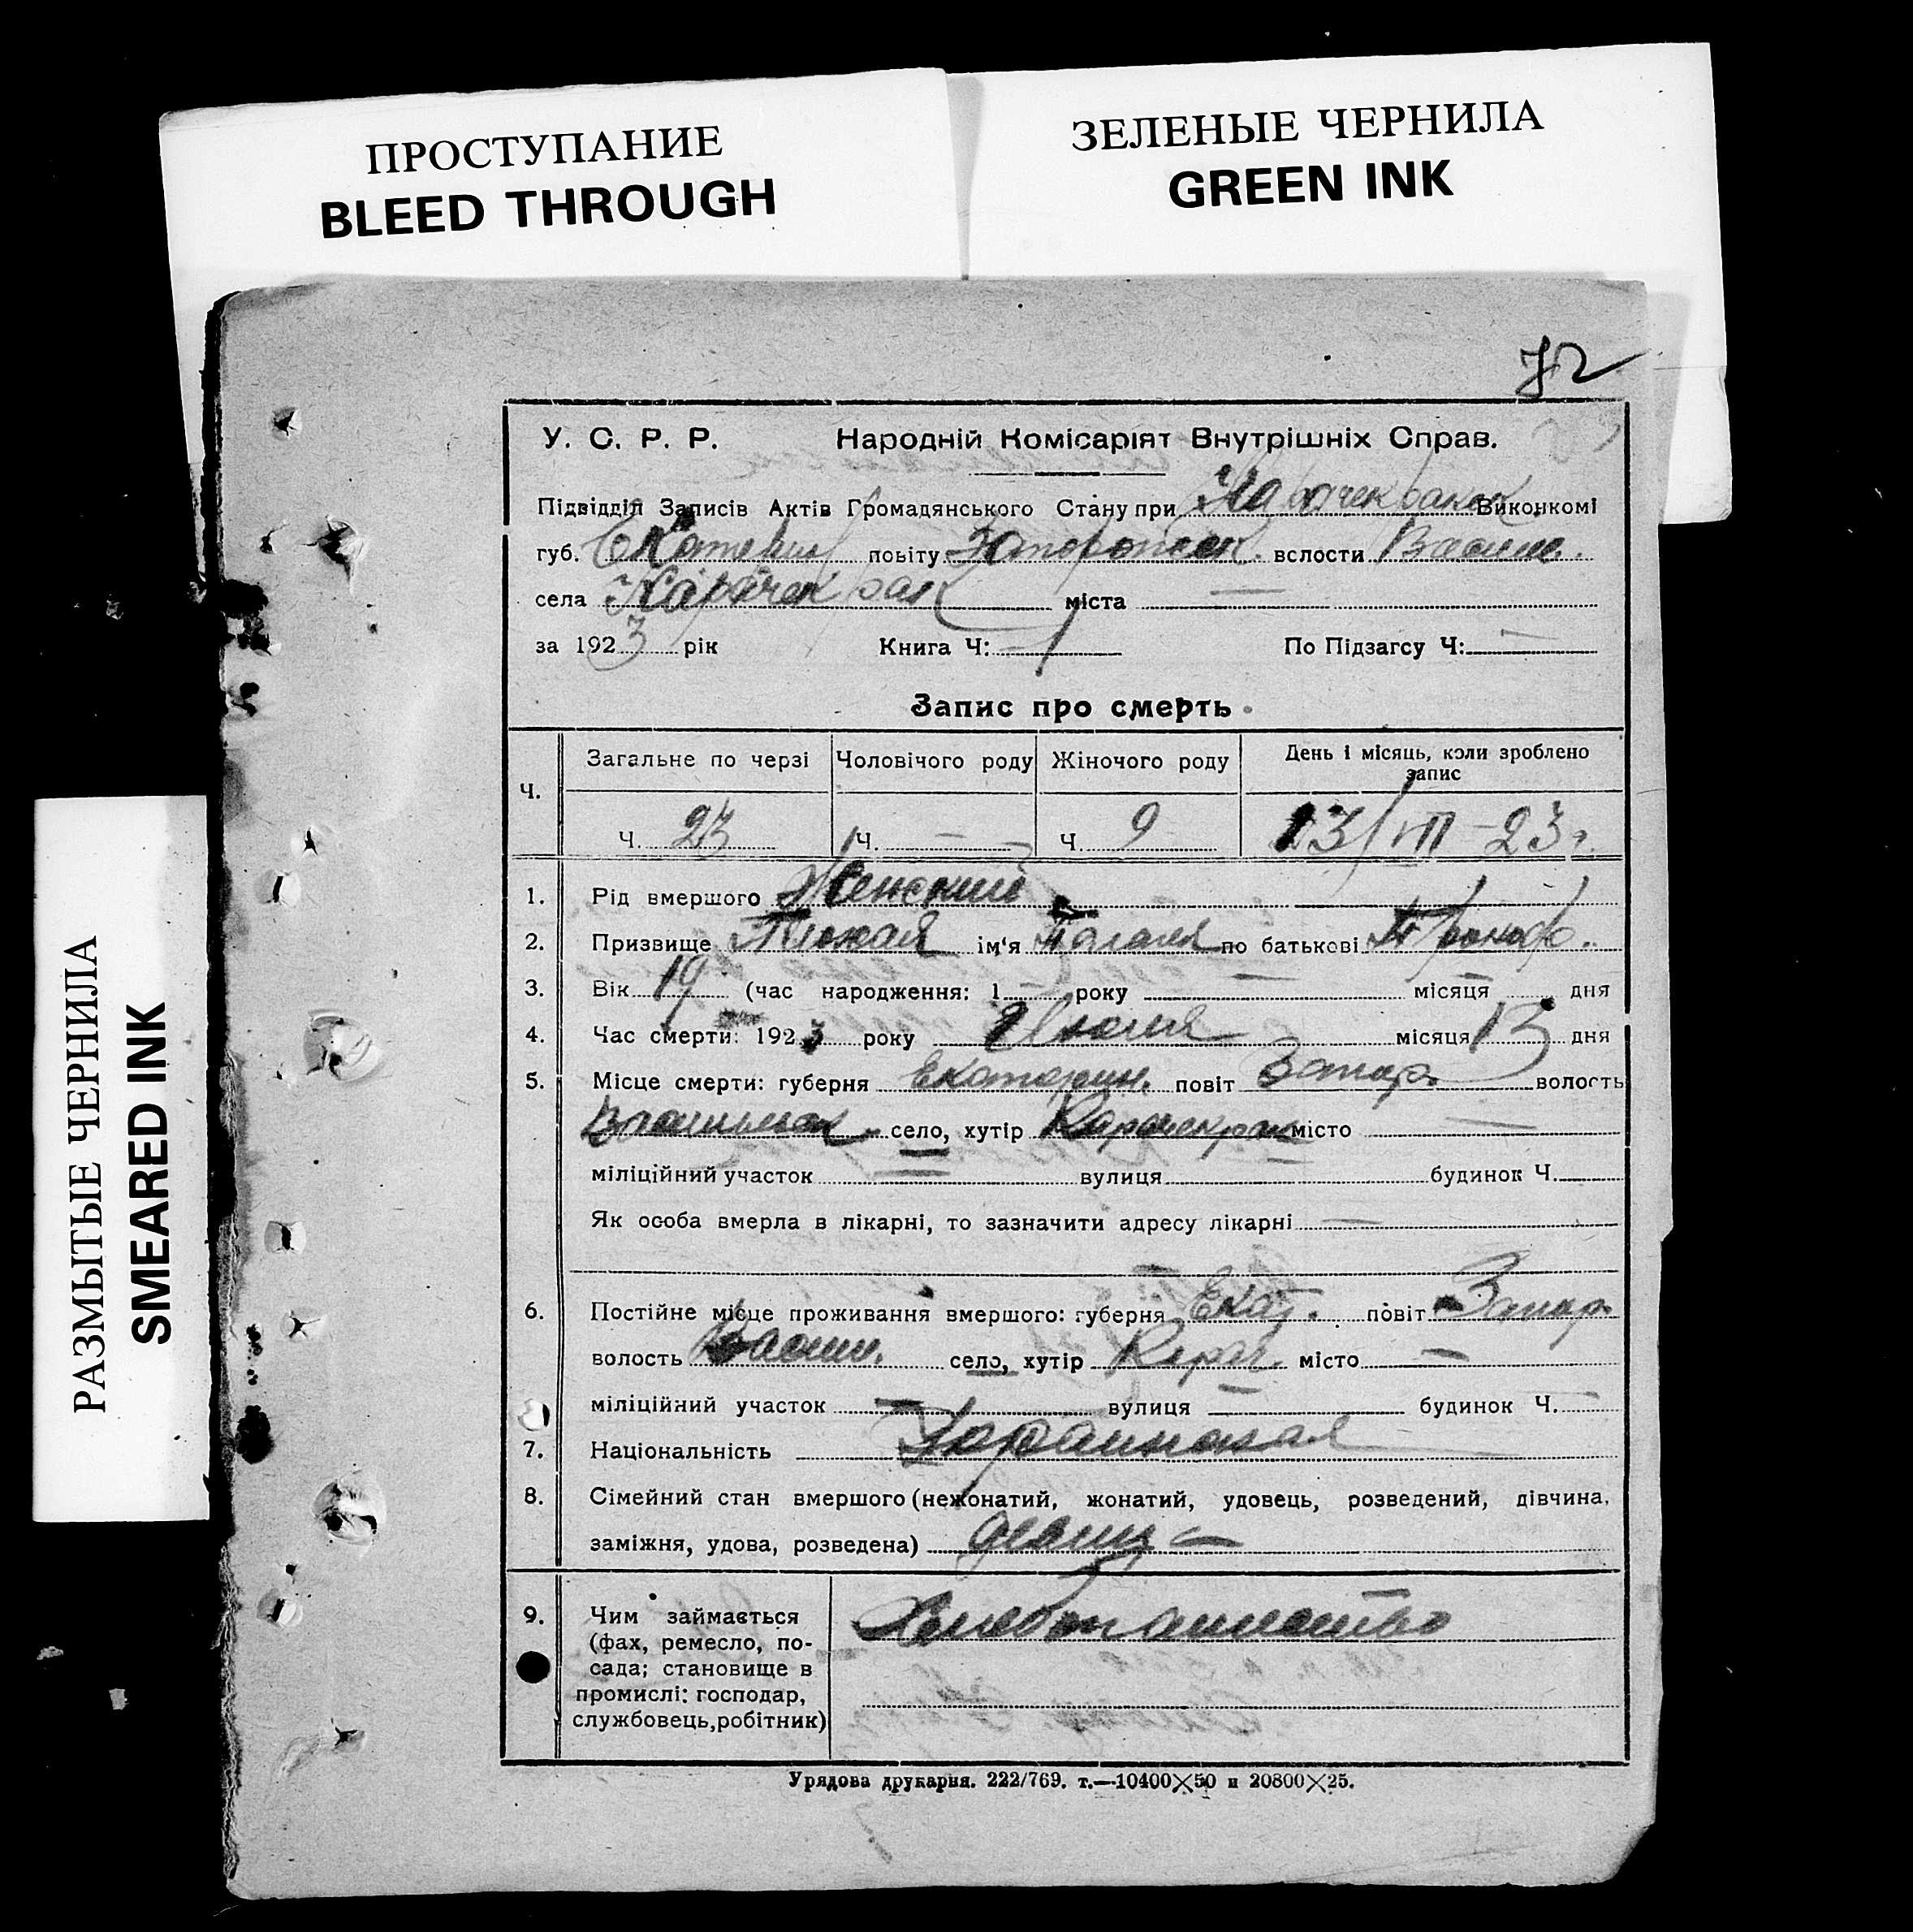 ПРОСТУПАНИЕ
BLEED THROUGH
ЗЕЛЕНЫЕ ЧЕРНИЛА
GREEN INK
РАЗМЫТЫЕ ЧЕРНИЛА
SMEARED INK
72
У. С. Р. Р. Народній Комісаріят Внутрішніх Справ.
Підвідділ Записів Актів Громадянського Стану при Виконкомі
губ. Екатерин повіту Запорожск. вслости Васили.
села Карачекрак міста —
за 1923 рік Книга Ч: 1 По Підзагсу Ч: —
Запис про смерть
Ч. Загальне по черзі Чоловічого роду Жіночого роду День і місяць, коли зроблено запис
Ч. 23 Ч. — Ч. 9 13/VII – 23 г.
1. Рід вмершого Женский
2. Призвище ім'я по батькові
3. Вік 19 (час народження: 1 року — місяця — дня
4. Час смерти: 1923 року Июля місяця 13 дня
5. Місце смерти: губерня Екатерин. повіт Запор. волость
Васильевск село, хутір Карачекрак місто —
міліційний участок — вулиця — будинок Ч.
Як особа вмерла в лікарні, то зазначити адресу лікарні —
6. Постійне місце проживання вмершого: губерня Екат. повіт Запор.
волость Васил. село, хутір Карач. місто —
міліційний участок — вулиця — будинок Ч.
7. Національність Украинская
8. Сімейний стан вмершого (нежонатий, жонатий, удовець, розведений, дівчина,
заміжня, удова, розведена) девица —
9. Чим займається Хлебопашество
(фах, ремесло, по-
сада; становище в
промислі: господар,
службовець, робітник)
Урядова друкарня. 222/769. т.—10400×50 и 20800×25.